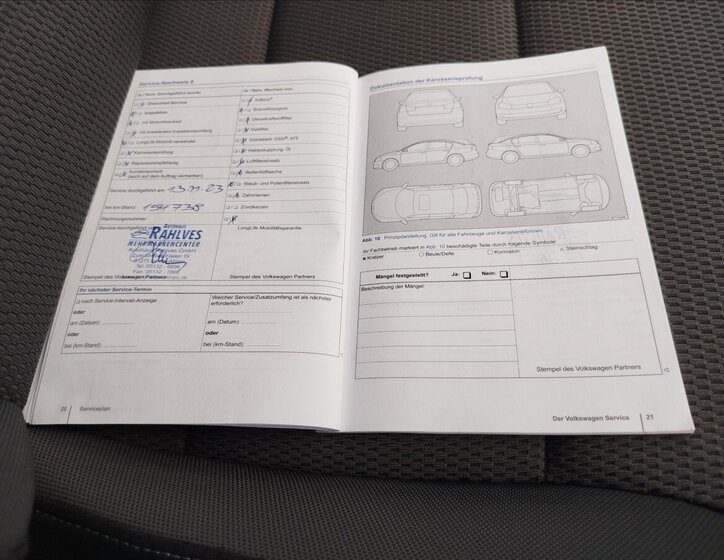 Service-Nachweis 8
Ja / Nein. Durchgeführt wurde
Ja / Nein. Wechsel von
Ölwechsel-Service
AdBlue®
Inspektion
Bremsflüssigkeit
mit Motorölwechsel
Dieselkraftstofffilter
mit erweitertem Inspektionsumfang
Gasfilter
LongLife Motoröl verwendet
Getriebeöl: DSG®, ATF
Karosserieprüfung
Haldexkupplung - Öl
Reparaturempfehlung
Luftfiltereinsatz
Kundenwunsch
(auch auf dem Auftrag vermerken)
Reifenfüllflasche
Staub- und Pollenfiltereinsatz
Service durchgeführt am: 13.11.23
Zahnriemen
bei km-Stand: 154738
Zündkerzen
Rechnungsnummer:
Service durchgeführt
LongLife Mobilitätsgarantie:
AUTOHAUS
RAHLVES
MEHRMARKENCENTER
Autohaus Rahlves GmbH
Stempel des Volkswagen Partners
Stempel des Volkswagen Partners
Ihr nächster Service-Termin
nach Service-Intervall-Anzeige
oder
am (Datum):
oder
bei (km-Stand):
Welcher Service/Zusatzumfang ist als nächster
erforderlich?
am (Datum):
oder
bei (km-Stand):
20 Serviceplan
Dokumentation der Karosserieprüfung
Abb. 10 Prinzipdarstellung: Gilt für alle Fahrzeuge und Karosserieformen.
zu Fachbetrieb markiert in Abb. 10 beschädigte Teile durch folgende Symbole:
x Kratzer
Beule/Delle
Korrosion
Steinschlag
Mängel festgestellt? Ja: Nein:
Beschreibung der Mängel:
Stempel des Volkswagen Partners
Der Volkswagen Service 21